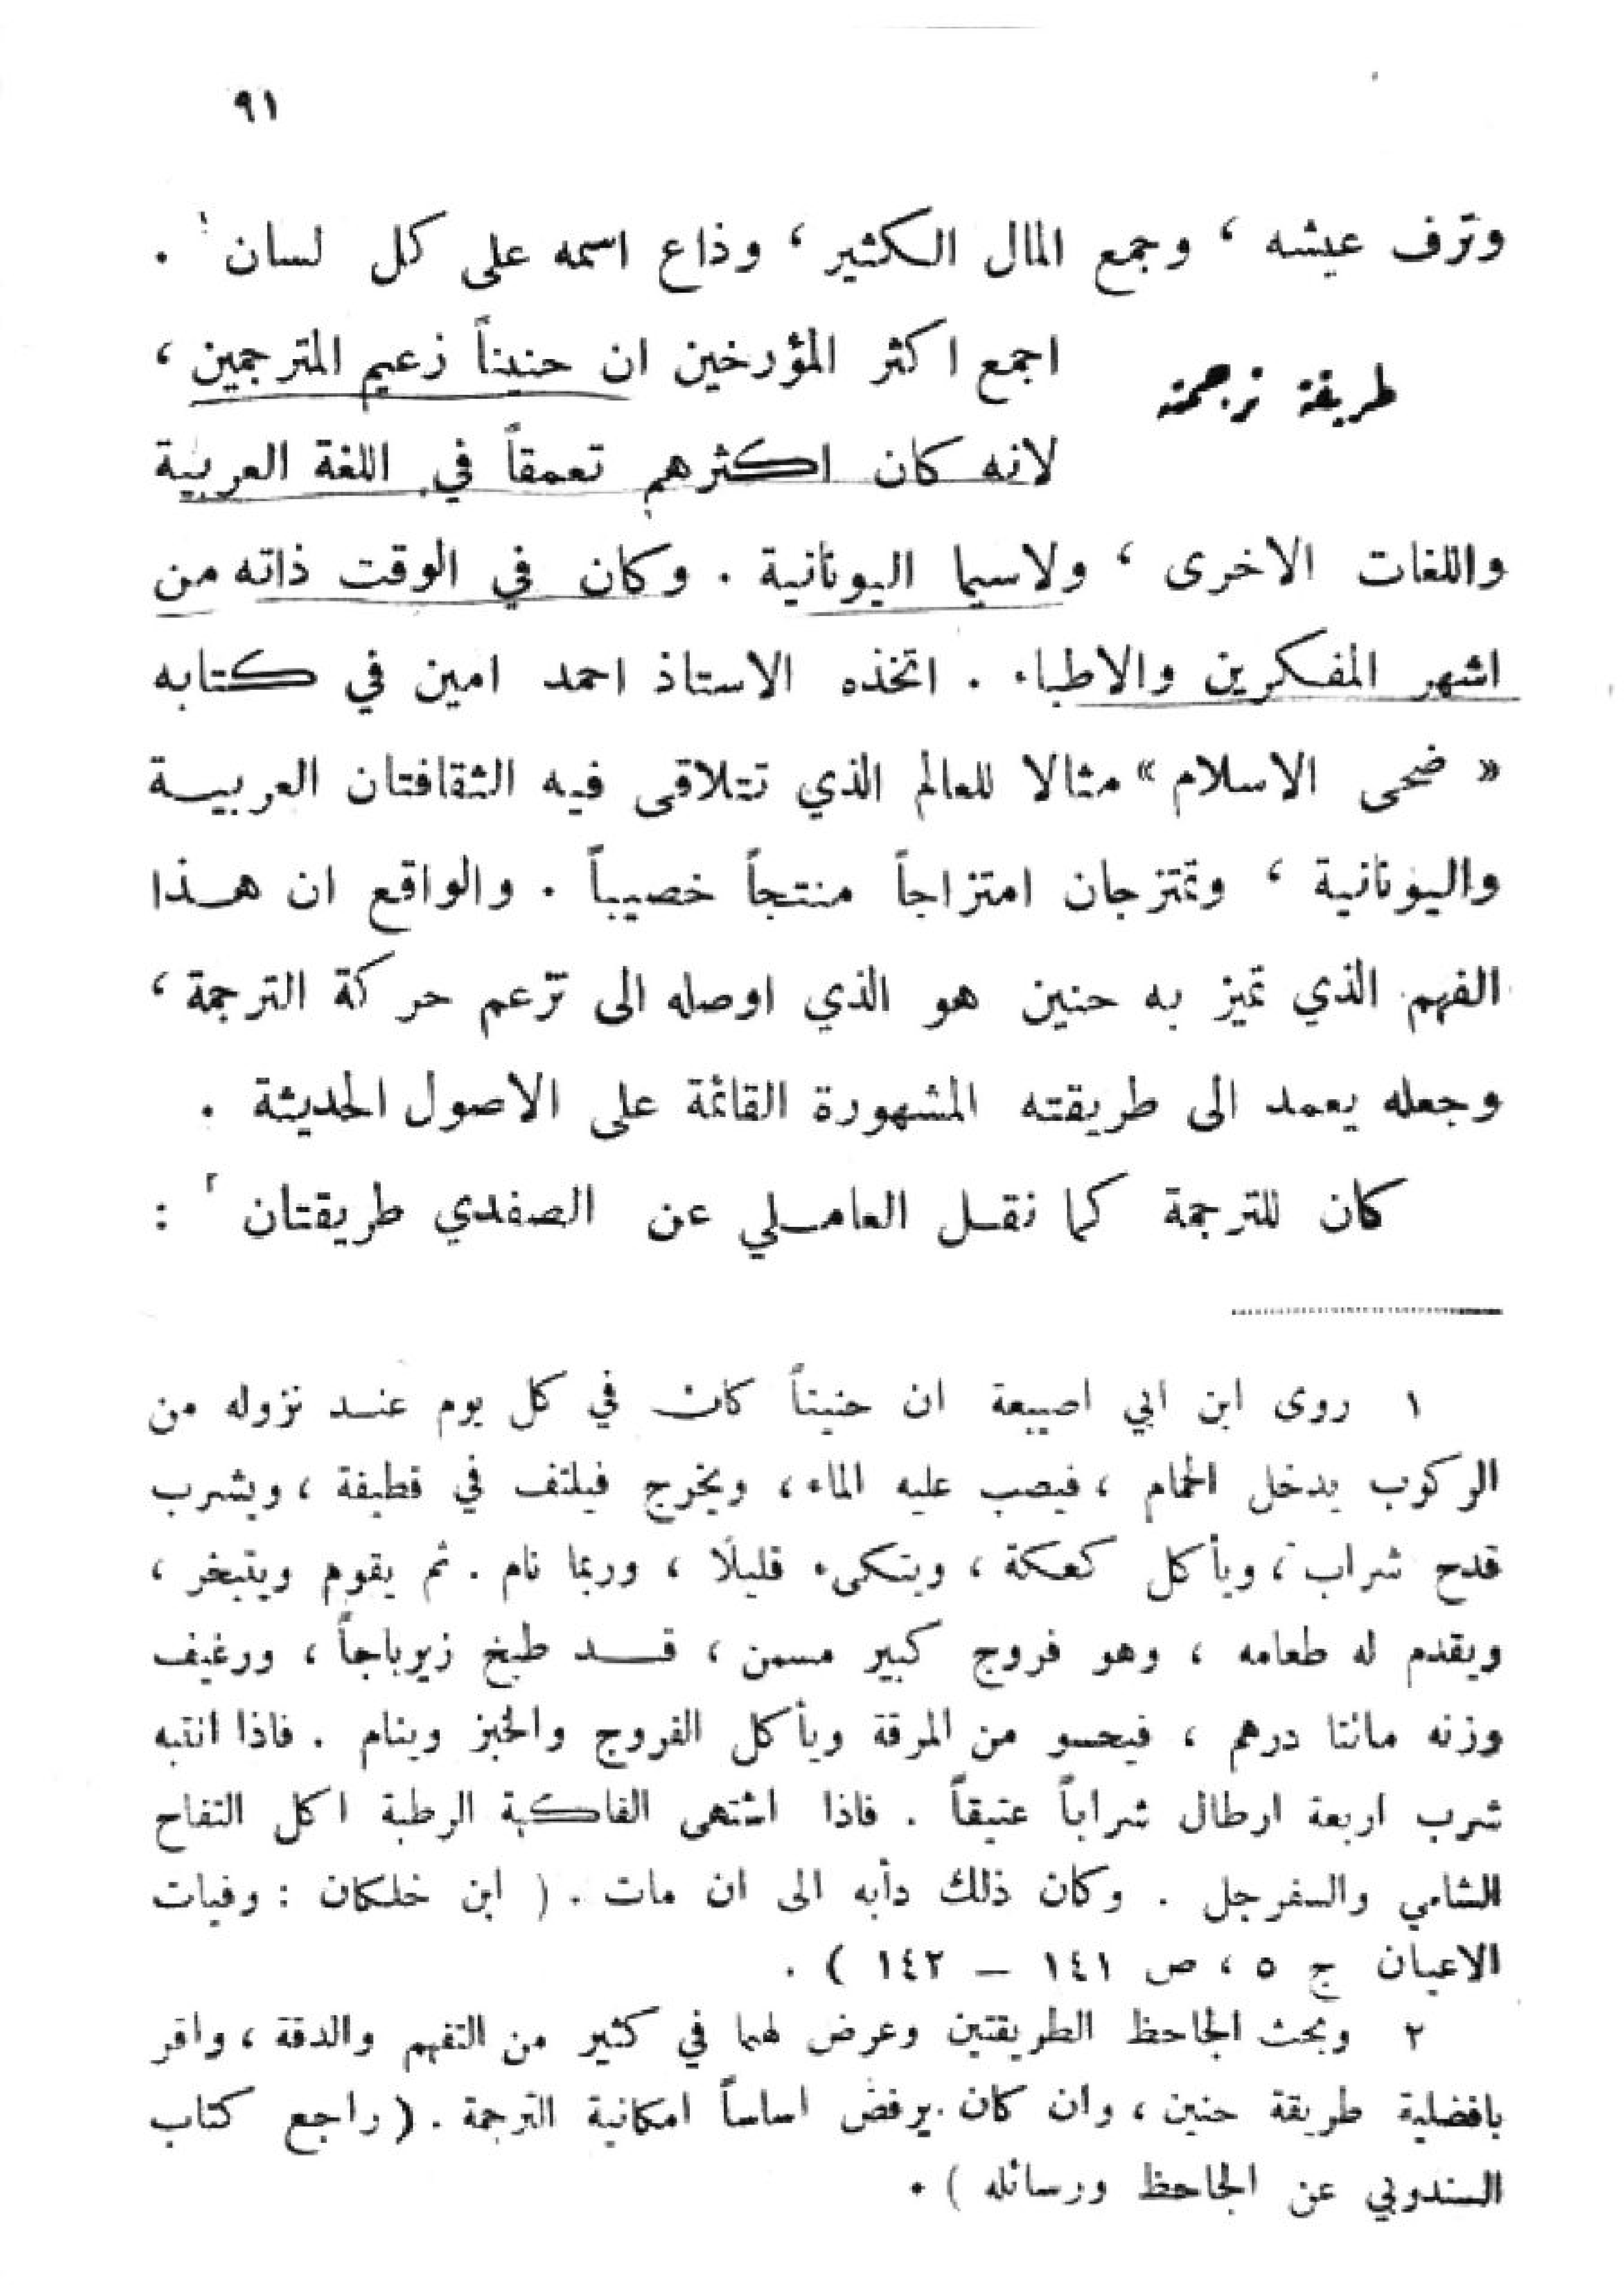 ٩١
وترف عيشه ، وجمع المال الكثير ، وذاع اسمه على كل لسان ١ .
طريقة ترجمة
اجمع اكثر المؤرخين ان حنيناً زعيم المترجمين ،
لانه كان اكثرهم تعمقاً في اللغة العربية
واللغات الاخرى ، ولاسيما اليونانية . وكان في الوقت ذاته من
اشهر المفكرين والاطباء . اتخذه الاستاذ احمد امين في كتابه
« ضحى الاسلام » مثالا للعالم الذي تتلاقى فيه الثقافتان العربية
واليونانية ، وتمتزجان امتزاجاً منتجاً خصيباً . والواقع ان هذا
الفهم الذي تميز به حنين هو الذي اوصله الى تزعم حركة الترجمة ،
وجعله يعمد الى طريقته المشهورة القائمة على الاصول الحديثة .
كان للترجمة كما نقل العاملي عن الصفدي طريقتان ٢ :
١ روى ابن ابي اصيبعة ان حنيناً كان في كل يوم عند نزوله من
الركوب يدخل الحمام ، فيصب عليه الماء ، ويخرج فيلتف في قطيفة ، ويشرب
قدح شراب ، ويأكل كعكة ، ويتكىء قليلًا ، وربما نام . ثم يقوم ويتبخر ،
ويقدم له طعامه ، وهو فروج كبير مسمن ، قد طبخ زيرباجاً ، ورغيف
وزنه مائتا درهم ، فيحسو من المرقة ويأكل الفروج والخبز وينام . فاذا انتبه
شرب اربعة ارطال شراباً عتيقاً . فاذا اشتهى الفاكهة الرطبة اكل التفاح
الشامي والسفرجل . وكان ذلك دأبه الى ان مات . ( ابن خلكان : وفيات
الاعيان ج ٥ ، ص ١٤١ – ١٤٢ ) .
٢ وبحث الجاحظ الطريقتين وعرض لهما في كثير من التفهم والدقة ، واقر
بافضلية طريقة حنين ، وان كان يرفض اساساً امكانية الترجمة . ( راجع كتاب
السندوبي عن الجاحظ ورسائله ) .